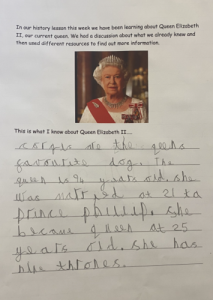 In our history lesson this week we have been learning about Queen Elizabeth
II, our current queen. We had a discussion about what we already knew and
then used different resources to find out more information.
This is what I know about Queen Elizabeth II....
corgis are the qeens
favourite dog. The
queen is 94 years old. she
was married at 21 to
prince phillip. she
became queen at 25
years old. she has
thrones.